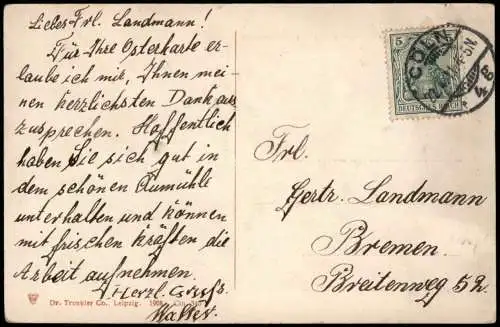 Liebes Frl. Landmann!
Für Ihre Osterkarte er-
laube ich mir, Ihnen mei-
nen herzlichsten Dank aus
zusprechen. Hoffentlich
haben Sie sich gut in
dem schönen Aumühle
unterhalten und können
mit frischen Kräften die
Arbeit aufnehmen.
Herzl. Gruß
Walter
Dr. Trenkler Co., Leipzig. 1908
5
CÖLN
DEUTSCHES REICH
Frl.
Gertr. Landmann
Bremen
Breitenweg 52